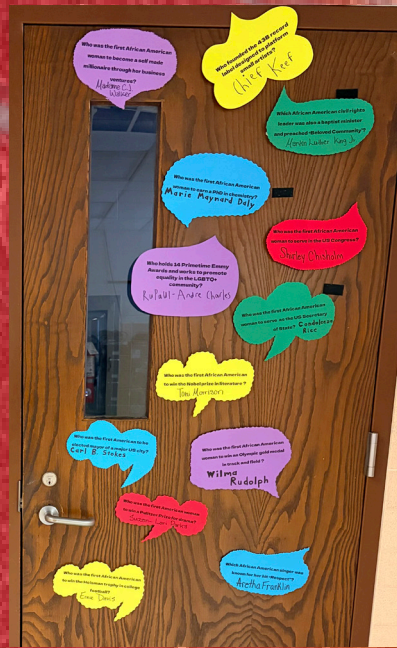 Who was the first African American
woman to become a self made
millionaire through her business
ventures?
Madame C.J.
Walker
Who founded the 43B record
label designed to platform
small artists?
Chief Keef
Which African American civil rights
leader was also a baptist minister
and preached "Beloved Community"?
Martin Luther King Jr.
Who was the first African American
woman to earn a PhD in chemistry?
Marie Maynard Daly
Who was the first African American
woman to serve in the US Congress?
Shirley Chisholm
Who holds 14 Primetime Emmy
Awards and works to promote
equality in the LGBTQ+
community?
RuPaul-Andre Charles
Who was the first African American
woman to serve as the US Secretary
of State? Condoleezza
Rice
Who was the first African American
to win the Nobel prize in literature?
Toni Morrison
Who was the first American to be
elected mayor of a major US city?
Carl B. Stokes
Who was the first African American
woman to win an Olympic gold medal
in track and field?
Wilma
Rudolph
Who was the first American woman
to win a Pulitzer Prize for drama?
Suzan Lori Parks
Who was the first African American
to win the Heisman trophy in college
football?
Ernie Davis
Which African American singer was
known for her hit "Respect"?
Aretha Franklin